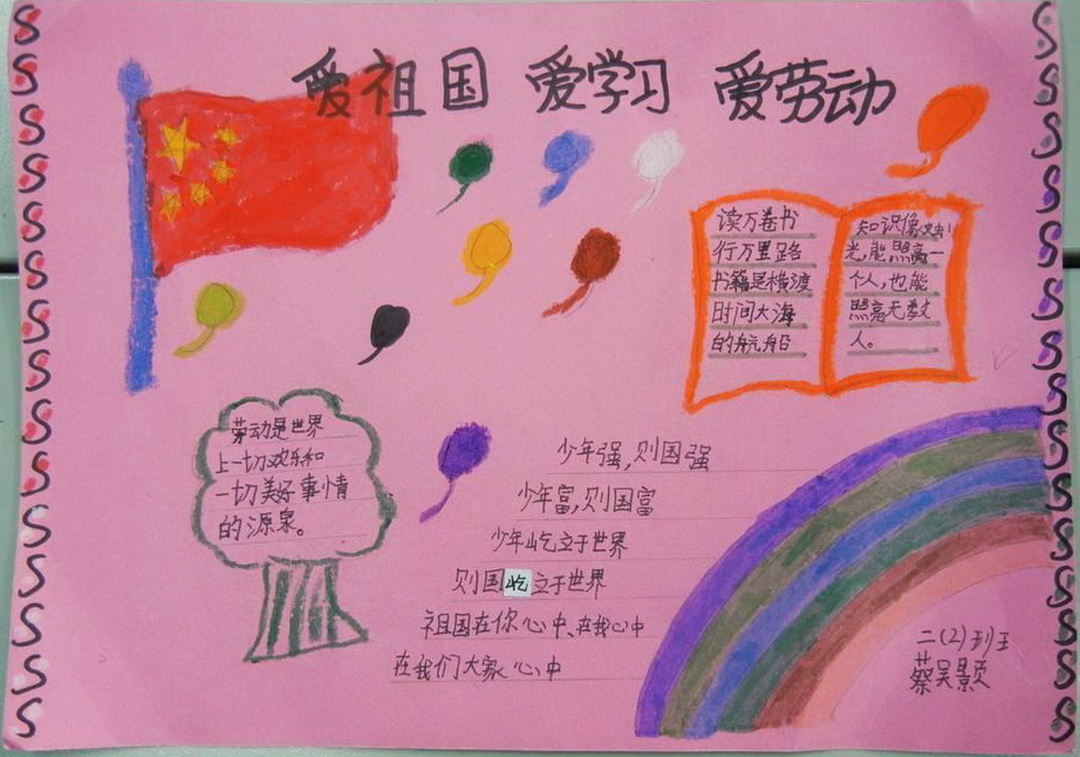 爱祖国 爱学习 爱劳动
读万卷书
行万里路
书籍是横渡
时间大海
的航船
知识像烛
光,能照亮一
个人,也能
照亮无数
人。
劳动是世界
上一切欢乐和
一切美好事情
的源泉。
少年强,则国强
少年富,则国富
少年屹立于世界
则国屹立于世界
祖国在你心中、在我心中
在我们大家心中
二(2)班
蔡吴景